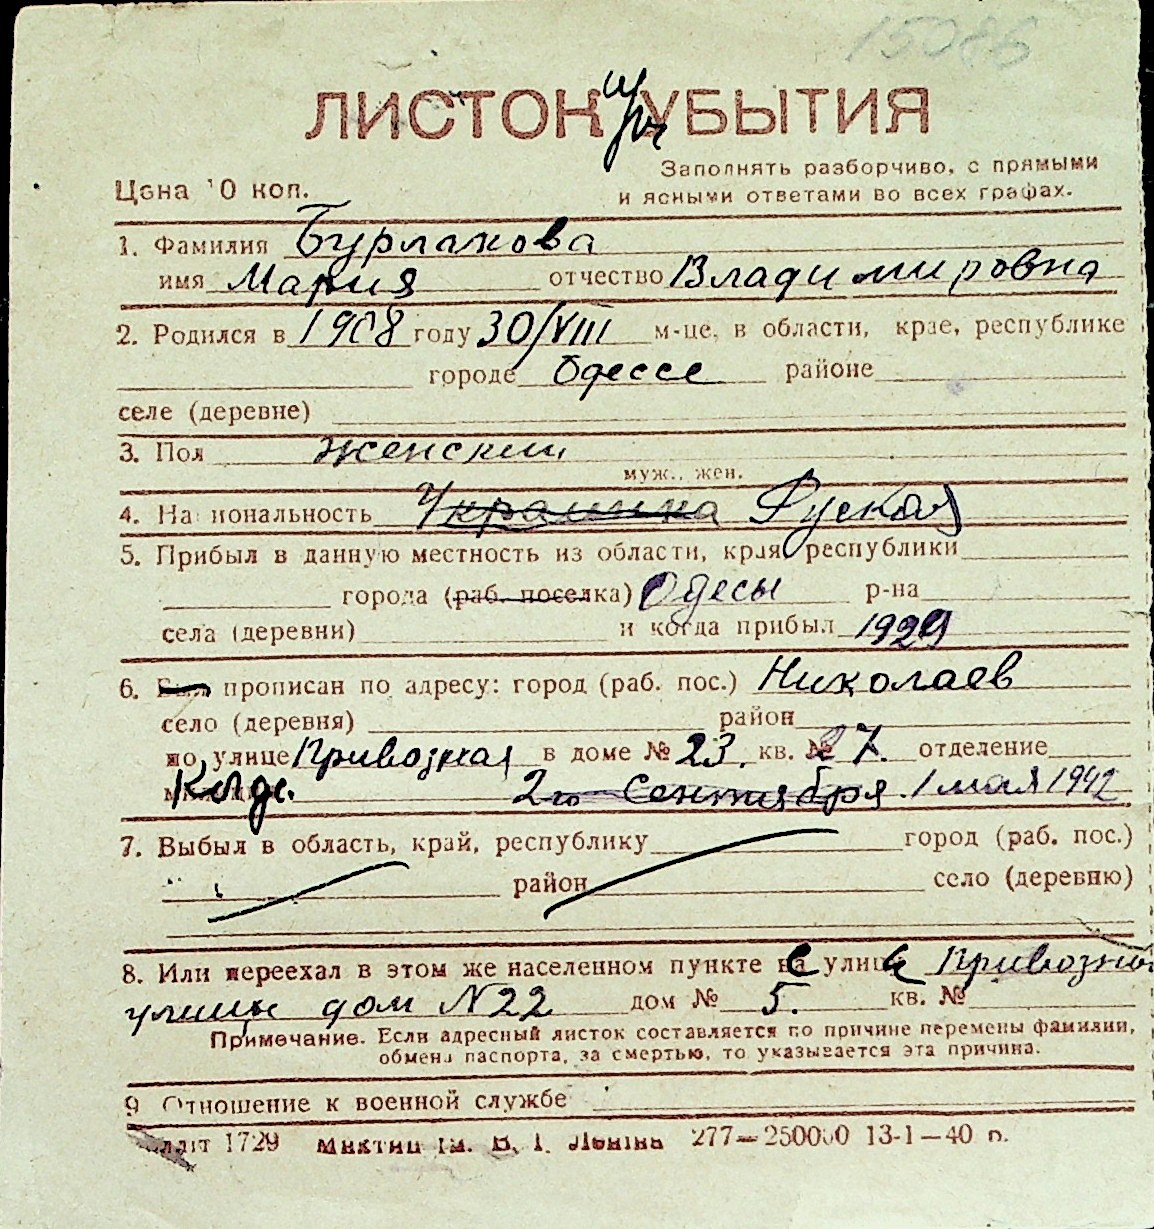 15086
ЛИСТОК УБЫТИЯ
Заполнять разборчиво, с прямыми
Цена 10 коп. и ясными ответами во всех графах.
1. Фамилия Бурлакова
имя Мария отчество Владимировна
2. Родился в 1908 году 30/VIII м-це, в области, крае, республике
городе Одессе районе
селе (деревне)
3. Пол женский
муж., жен.
4. Национальность Украинка Руская
5. Прибыл в данную местность из области, края республики
города (раб. поселка) Одесы р-на
села (деревни) и когда прибыл 1929
6. Был прописан по адресу: город (раб. пос.) Николаев
село (деревня) район
по улице Привозная в доме № 23. кв. № 27. отделение
2го Сентября. 1 мая 1942
7. Выбыл в область, край, республику город (раб. пос.)
район село (деревню)
8. Или переехал в этом же населенном пункте с улицы Привозной
улицы дом N22 дом № 5. кв. №
Примечание. Если адресный листок составляется по причине перемены фамилии,
обмена паспорта, за смертью, то указывается эта причина.
9 Отношение к военной службе
1729 277—250000 13-1—40 п.